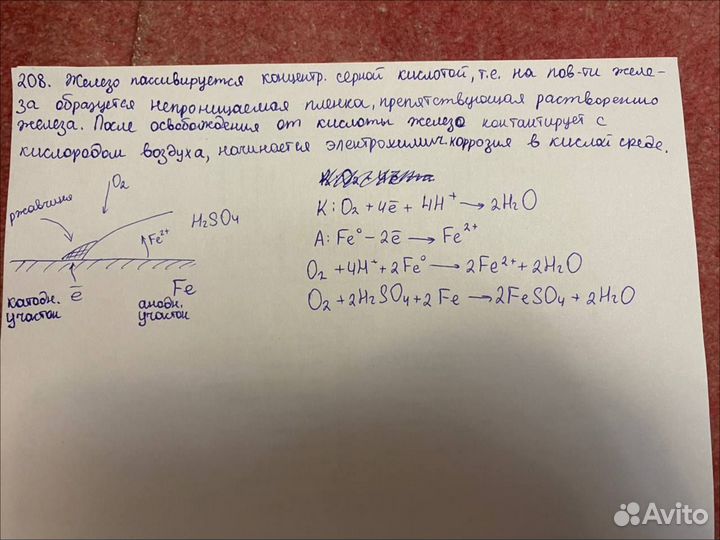 208. Железо пассивируется концентр. серной кислотой, т.е. на пов-ти желе-
за образуется непроницаемая пленка, препятствующая растворению
железа. После освобождения от кислоты железо контактирует с
кислородом воздуха, начинается электрохимич. коррозия в кислой среде.
ржавчина
O₂
H₂SO₄
Fe²⁺
ē
Fe
катодн.
участок
анодн.
участок
К: O₂ + 4ē + 4H⁺ → 2H₂O
А: Fe⁰ − 2ē → Fe²⁺
O₂ + 4H⁺ + 2Fe⁰ → 2Fe²⁺ + 2H₂O
O₂ + 2H₂SO₄ + 2Fe → 2FeSO₄ + 2H₂O
Avito